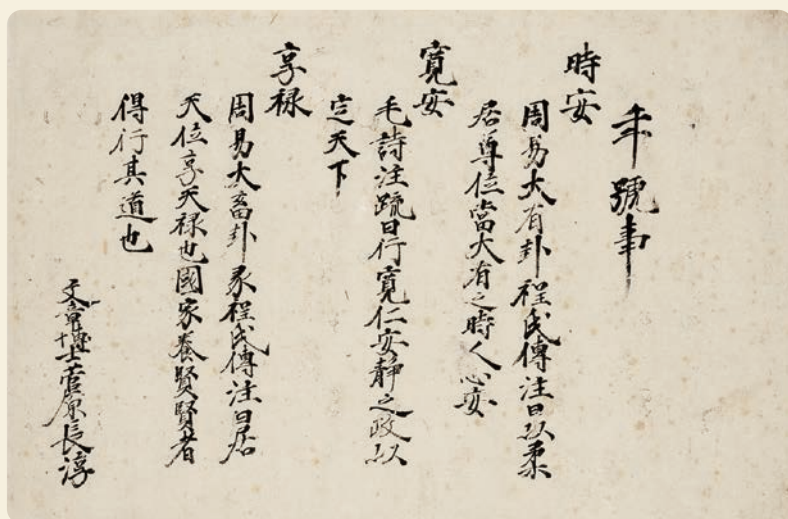 年號事
時安
周易大有卦程氏傳注曰以柔
居尊位當大有之時人心安
寛安
毛詩注䟽曰行寛仁安静之政以
定天下
享禄
周易大畜卦彖程氏傳注曰居
天位享天禄也國家養賢賢者
得行其道也
文章博士菅原長淳